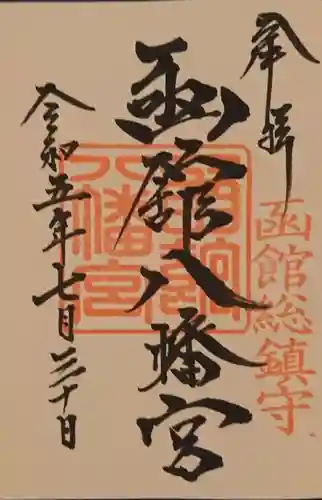 奉拝
函館総鎮守
函館八幡宮
令和五年七月三十日